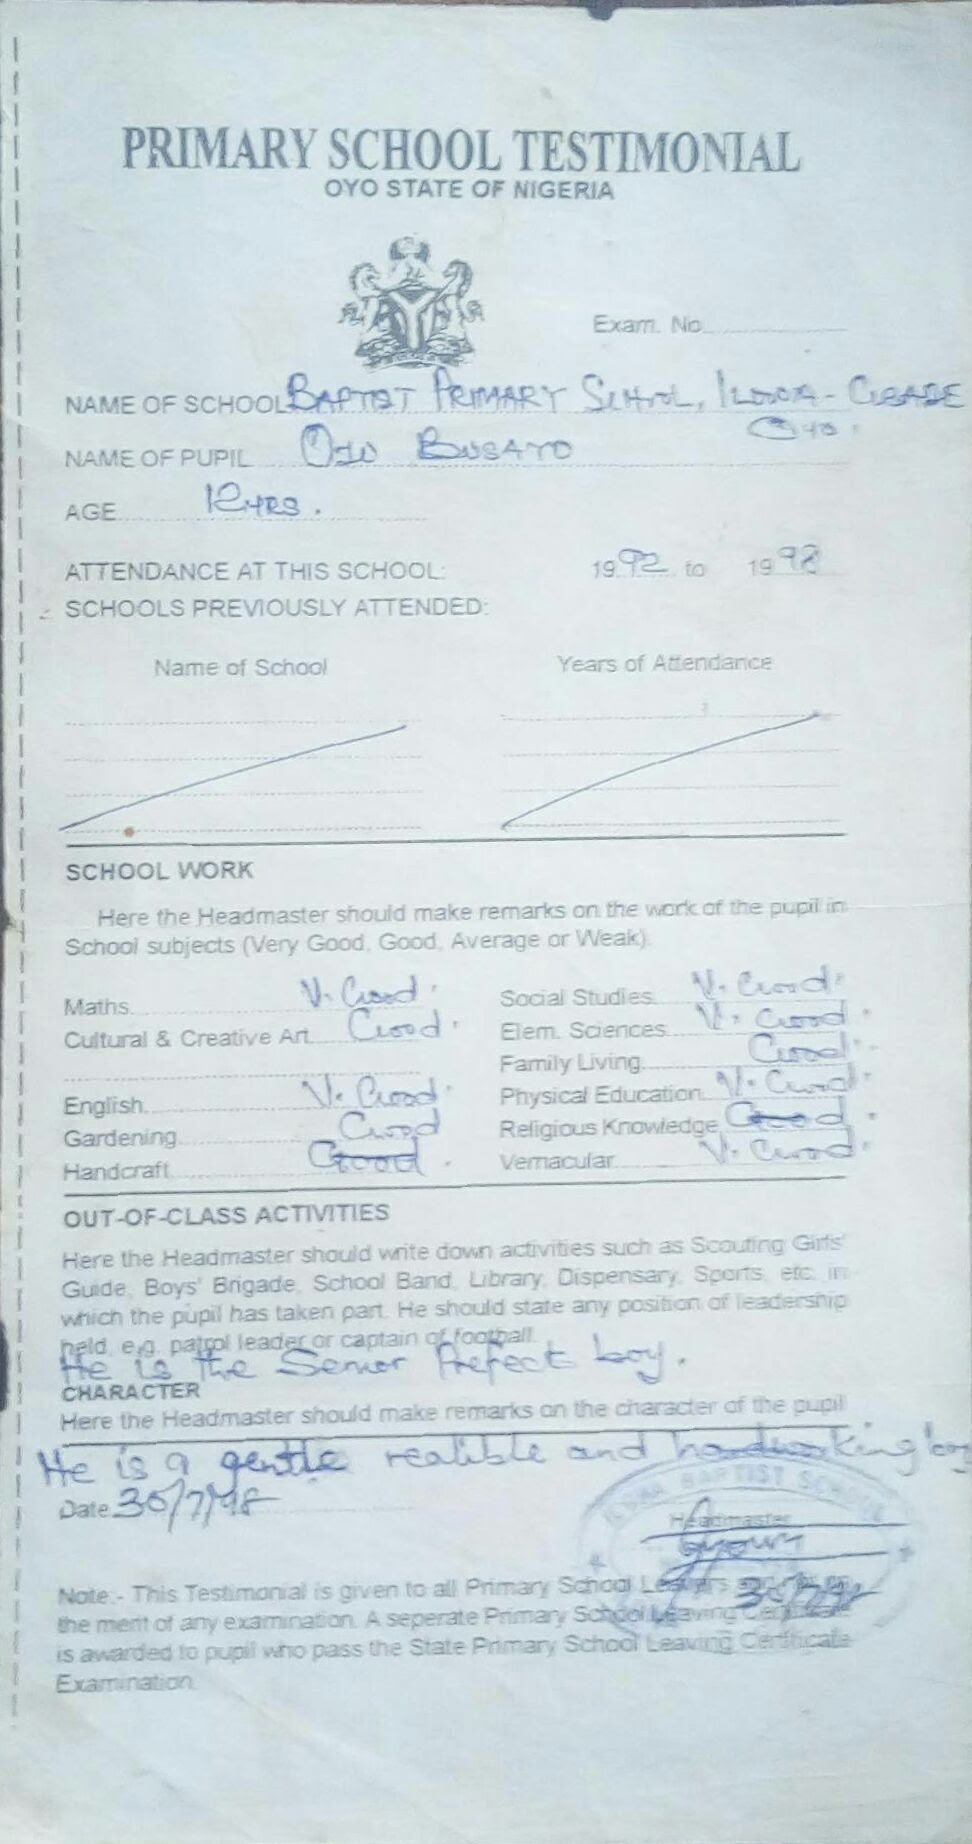 PRIMARY SCHOOL TESTIMONIAL
OYO STATE OF NIGERIA
Exam. No
NAME OF SCHOOL BAPTIST PRIMARY SCHOOL, ILOWA - GBADE
OYO.
NAME OF PUPIL OJO BUSAYO
AGE 12YRS.
ATTENDANCE AT THIS SCHOOL: 1992 to 1998
SCHOOLS PREVIOUSLY ATTENDED:
Name of School Years of Attendance
SCHOOL WORK
Here the Headmaster should make remarks on the work of the pupil in
School subjects (Very Good, Good, Average or Weak).
Maths V. Good. Social Studies V. Good.
Cultural & Creative Art Good. Elem. Sciences V. Good.
Family Living Good.
English V. Good. Physical Education V. Good.
Gardening Good Religious Knowledge Good.
Handcraft Good. Vernacular V. Good.
OUT-OF-CLASS ACTIVITIES
Here the Headmaster should write down activities such as Scouting Girls'
Guide, Boys' Brigade, School Band, Library, Dispensary, Sports, etc. in
which the pupil has taken part. He should state any position of leadership
held, e.g. patrol leader or captain of football.
He is the Senior Prefect boy.
CHARACTER
Here the Headmaster should make remarks on the character of the pupil
He is a gentle realible and hardworking boy
Date 30/7/98
BAPTIST SCHOOL
Headmaster
30/7/98
Note:- This Testimonial is given to all Primary School Leavers
the merit of any examination. A seperate Primary School Leaving Certificate
is awarded to pupil who pass the State Primary School Leaving Certificate
Examination.